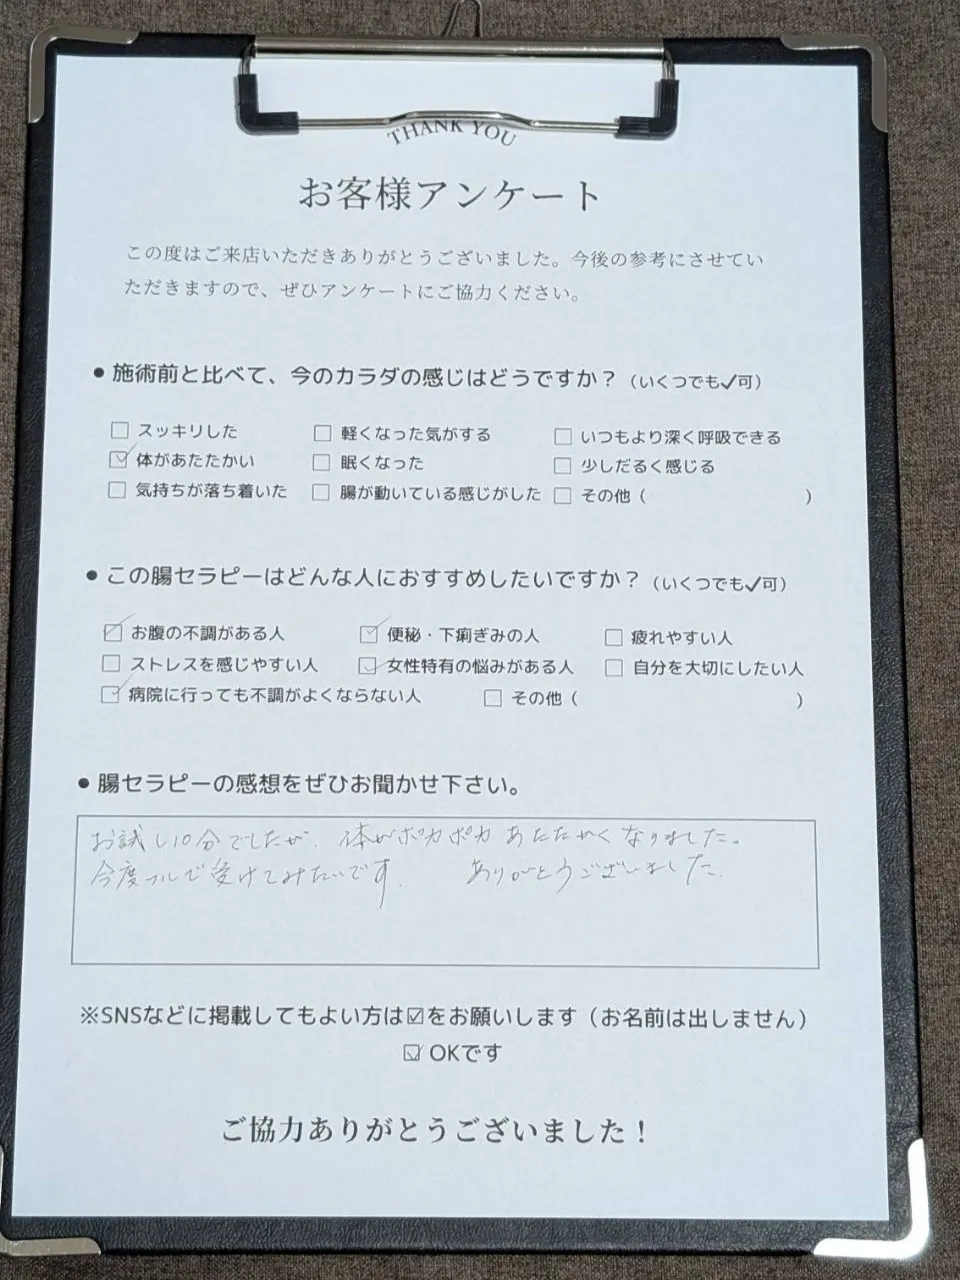 THANK YOU
お客様アンケート
この度はご来店いただきありがとうございました。今後の参考にさせてい
ただきますので、ぜひアンケートにご協力ください。
● 施術前と比べて、今のカラダの感じはどうですか？（いくつでも✓可）
☐ スッキリした ☐ 軽くなった気がする ☐ いつもより深く呼吸できる
☑ 体があたたかい ☐ 眠くなった ☐ 少しだるく感じる
☐ 気持ちが落ち着いた ☐ 腸が動いている感じがした ☐ その他（ ）
● この腸セラピーはどんな人におすすめしたいですか？（いくつでも✓可）
☑ お腹の不調がある人 ☑ 便秘・下痢ぎみの人 ☐ 疲れやすい人
☐ ストレスを感じやすい人 ☑ 女性特有の悩みがある人 ☐ 自分を大切にしたい人
☑ 病院に行っても不調がよくならない人 ☐ その他（ ）
● 腸セラピーの感想をぜひお聞かせ下さい。
お試し10分でしたが、体がポカポカあたたかくなりました。
今度フルで受けてみたいです。 ありがとうございました。
※SNSなどに掲載してもよい方は☑をお願いします（お名前は出しません）
☑ OKです
ご協力ありがとうございました！